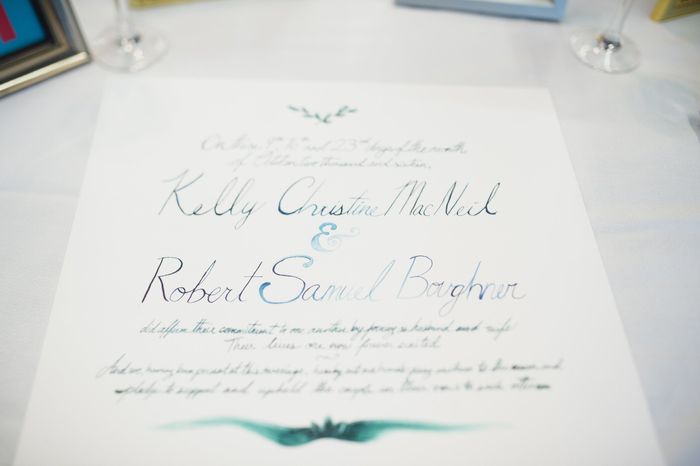 On these 9th, 16th and 23rd days of the month
of October two thousand and sixteen,
Kelly Christine MacNeil
&
Robert Samuel Boughner
did affirm their commitment to one another by joining as husband and wife
Their lives are now forever united
And we, having been present at this marriage, having set our hands to the
pledge to support and uphold the couple in their vows to each other